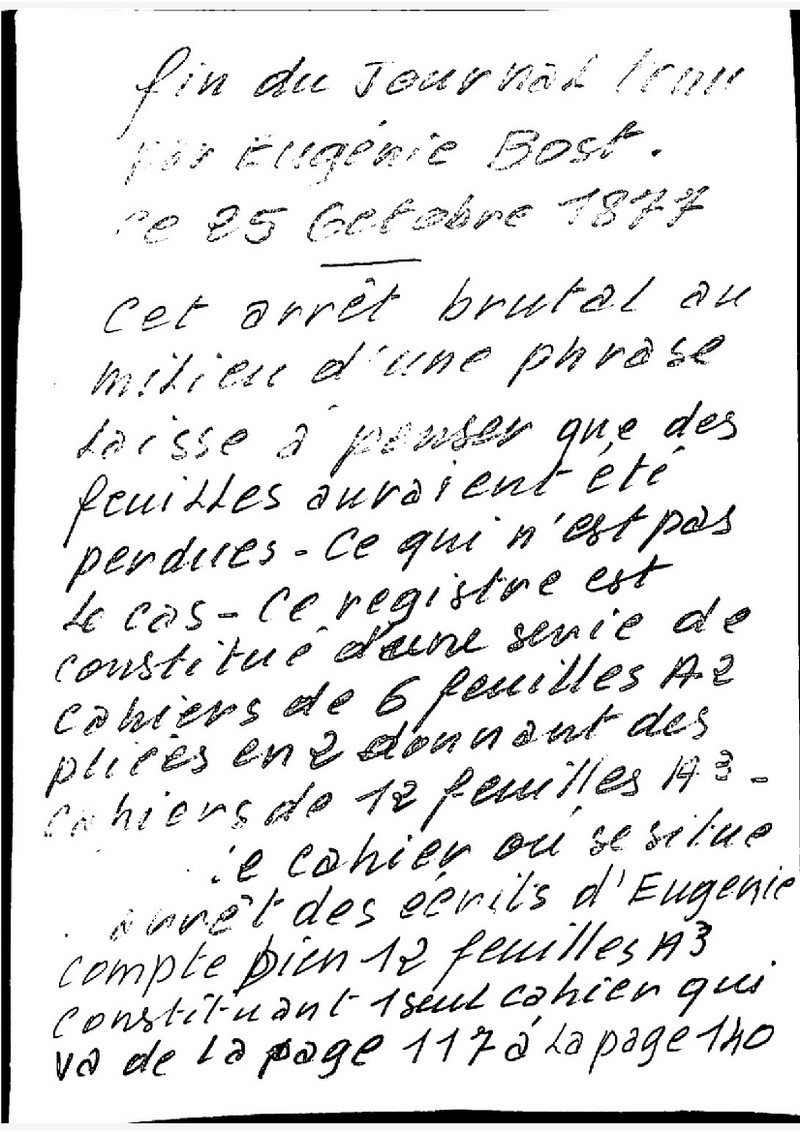 fin du Journal tenu
par Eugénie Bost.
ce 25 Octobre 1877
Cet arrêt brutal au
milieu d'une phrase
laisse à penser que des
feuilles auraient été
perdues - Ce qui n'est pas
le cas - Ce registre est
constitué d'une serie de
cahiers de 6 feuilles A2
pliées en 2 donnant des
cahiers de 12 feuilles A3 -
le cahier où se situe
arrêt des eécrits d'Eugenie
compte bien 12 feuilles A3
constituant 1 seul cahier qui
va de la page 117 à la page 140